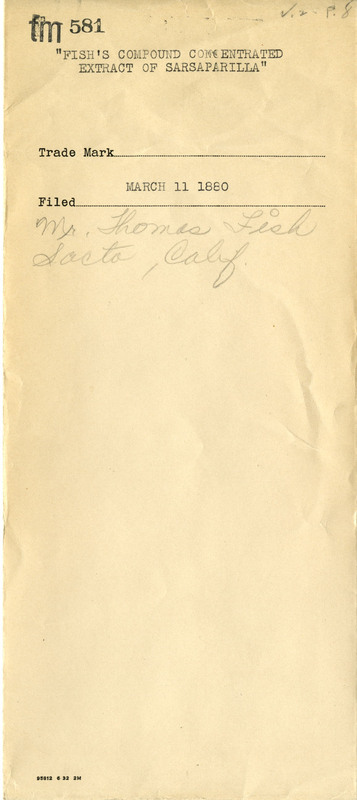 tm 581
V.2 - P. 8
"FISH'S COMPOUND CONCENTRATED
EXTRACT OF SARSAPARILLA"
Trade Mark
MARCH 11 1880
Filed
Mr. Thomas Fish
Sacto, Calif.
95812 6 32 2M